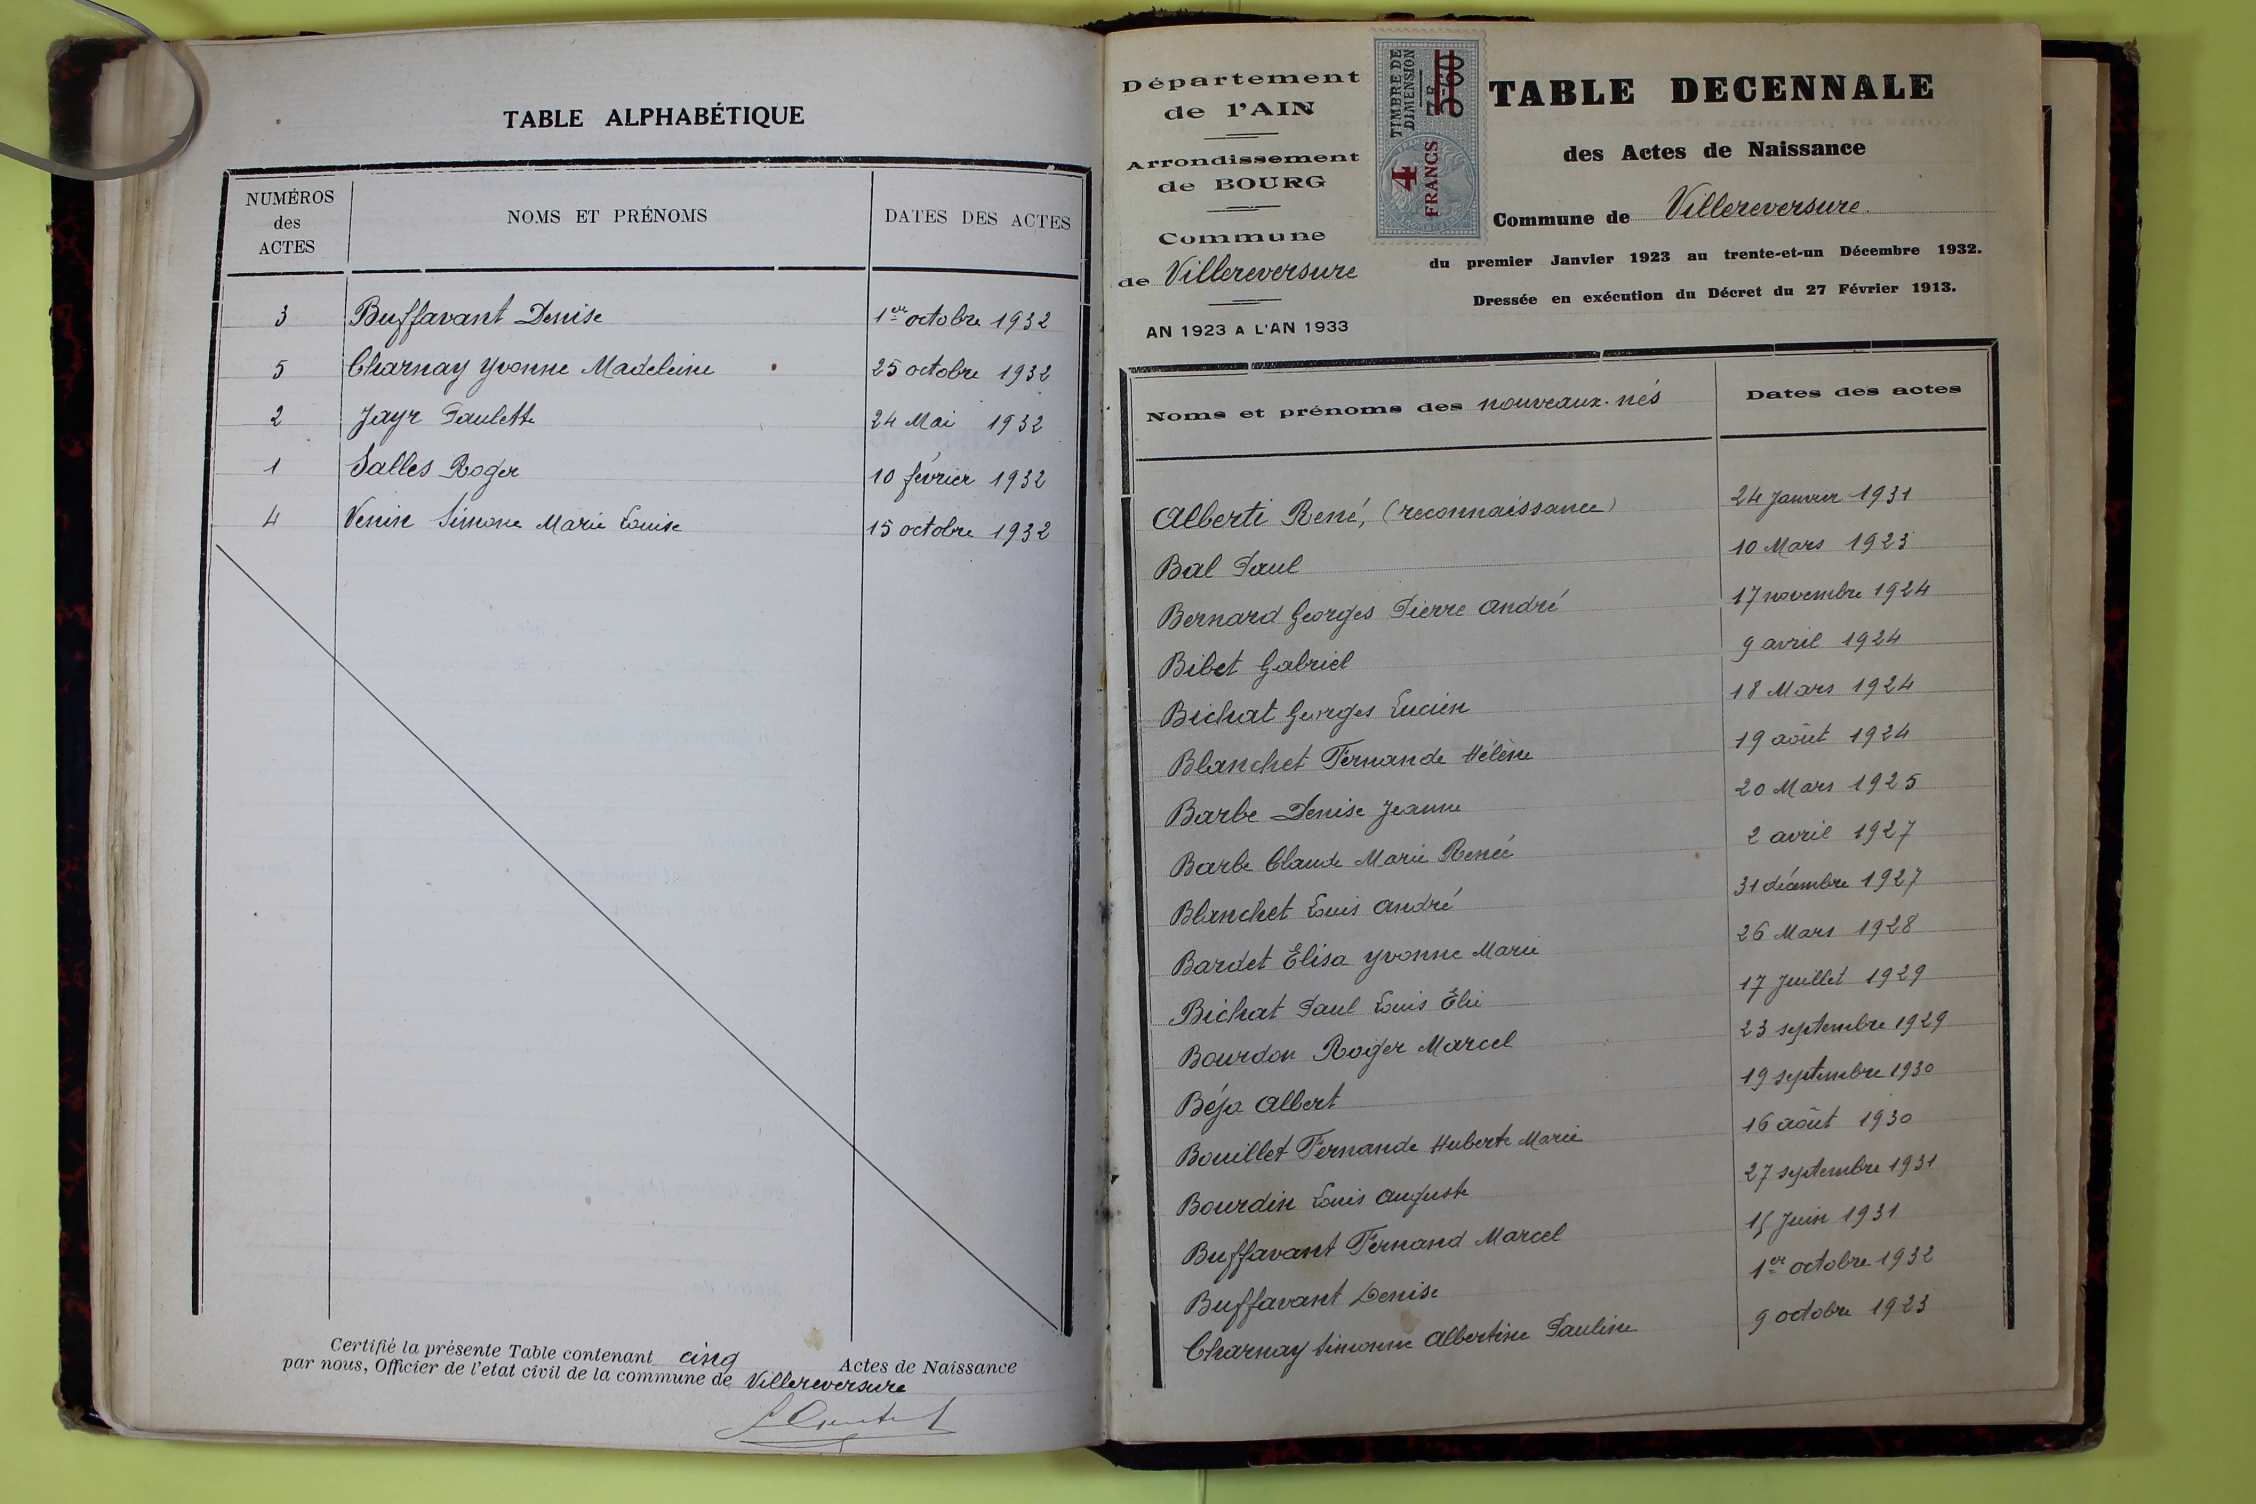 TABLE ALPHABÉTIQUE
NUMÉROS
des
ACTES
NOMS ET PRÉNOMS
DATES DES ACTES
3 Buffavant Denise 1er octobre 1932
5 Charnay Yvonne Madeleine 25 octobre 1932
2 Jayr Paulette 24 Mai 1932
1 Salles Roger 10 février 1932
4 Venin Simone Marie Louise 15 octobre 1932
Certifié la présente Table contenant cinq Actes de Naissance
par nous, Officier de l'etat civil de la commune de Villereversure
Département
de l'AIN
Arrondissement
de BOURG
Commune
de Villereversure
AN 1923 A L'AN 1933
TIMBRE DE
DIMENSION
4
FRANCS
TABLE DECENNALE
des Actes de Naissance
Commune de Villereversure.
du premier Janvier 1923 au trente-et-un Décembre 1932.
Dressée en exécution du Décret du 27 Février 1913.
Noms et prénoms des nouveaux-nés Dates des actes
Alberti René, (reconnaissance) 24 Janvier 1931
Bal Paul 10 Mars 1923
Bernard Georges Pierre André 17 novembre 1924
Bibet Gabriel 9 avril 1924
Bichat Georges Lucien 18 Mars 1924
Blanchet Fernande Hélène 19 août 1924
Barbe Denise Jeanne 20 Mars 1925
Barbe Claude Marie Renée 2 avril 1927
Blanchet Louis André 31 décembre 1927
Bardet Elisa Yvonne Marie 26 Mars 1928
Bichat Paul Louis Élie 17 Juillet 1929
Bourdon Roger Marcel 23 septembre 1929
Béja Albert 19 septembre 1930
Bouillet Fernande Huberte Marie 16 août 1930
Bourdin Louis Auguste 27 septembre 1931
Buffavant Fernand Marcel 15 Juin 1931
Buffavant Denise 1er octobre 1932
Charnay Simonne Albertine Pauline 9 octobre 1923